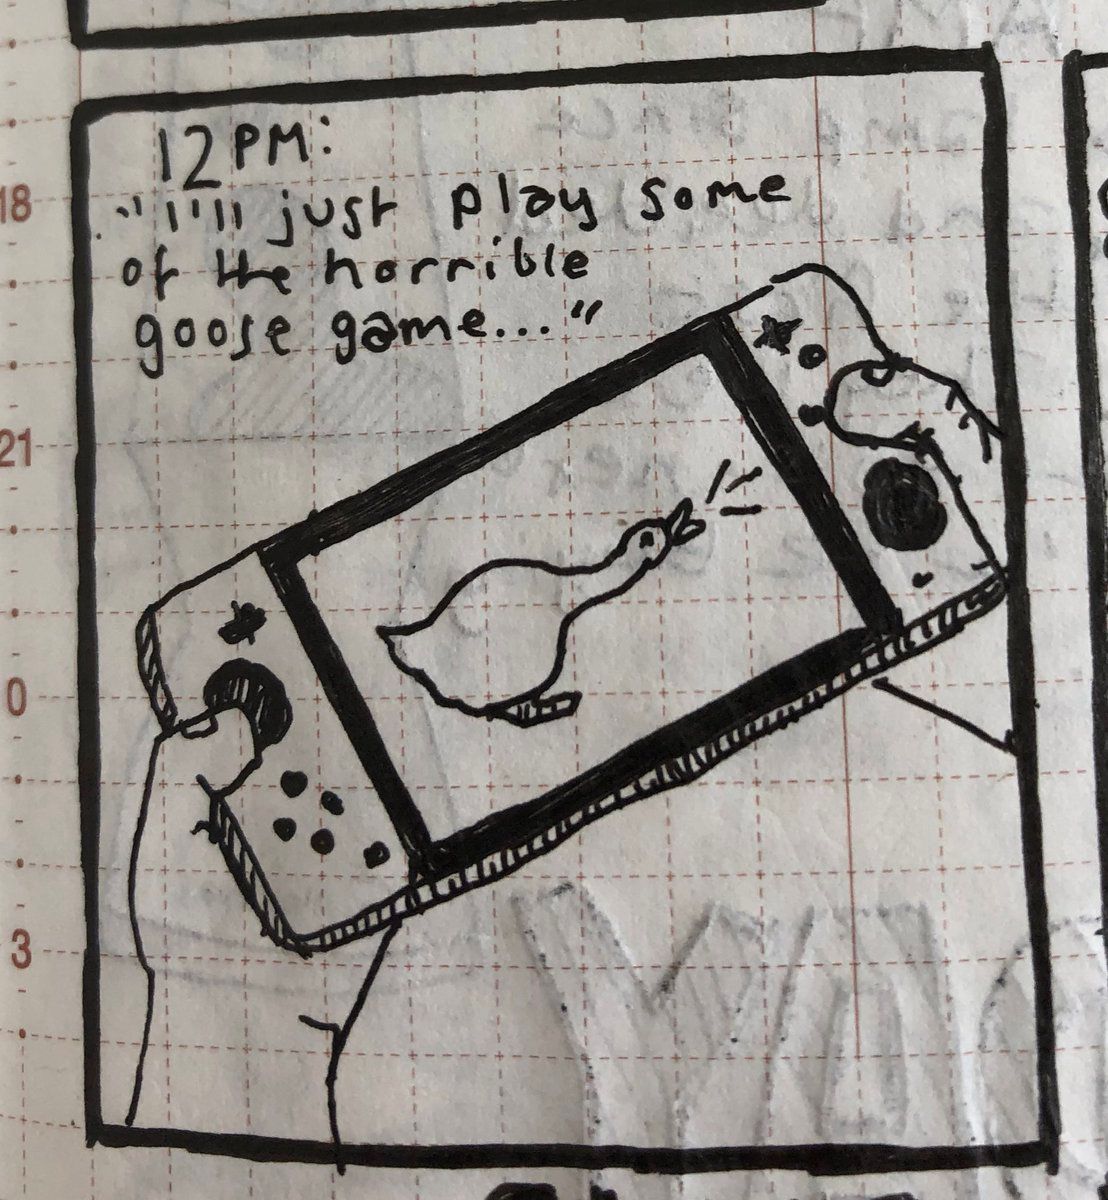 12PM:
"I'll just play some
of the horrible
goose game..."
18
21
0
3